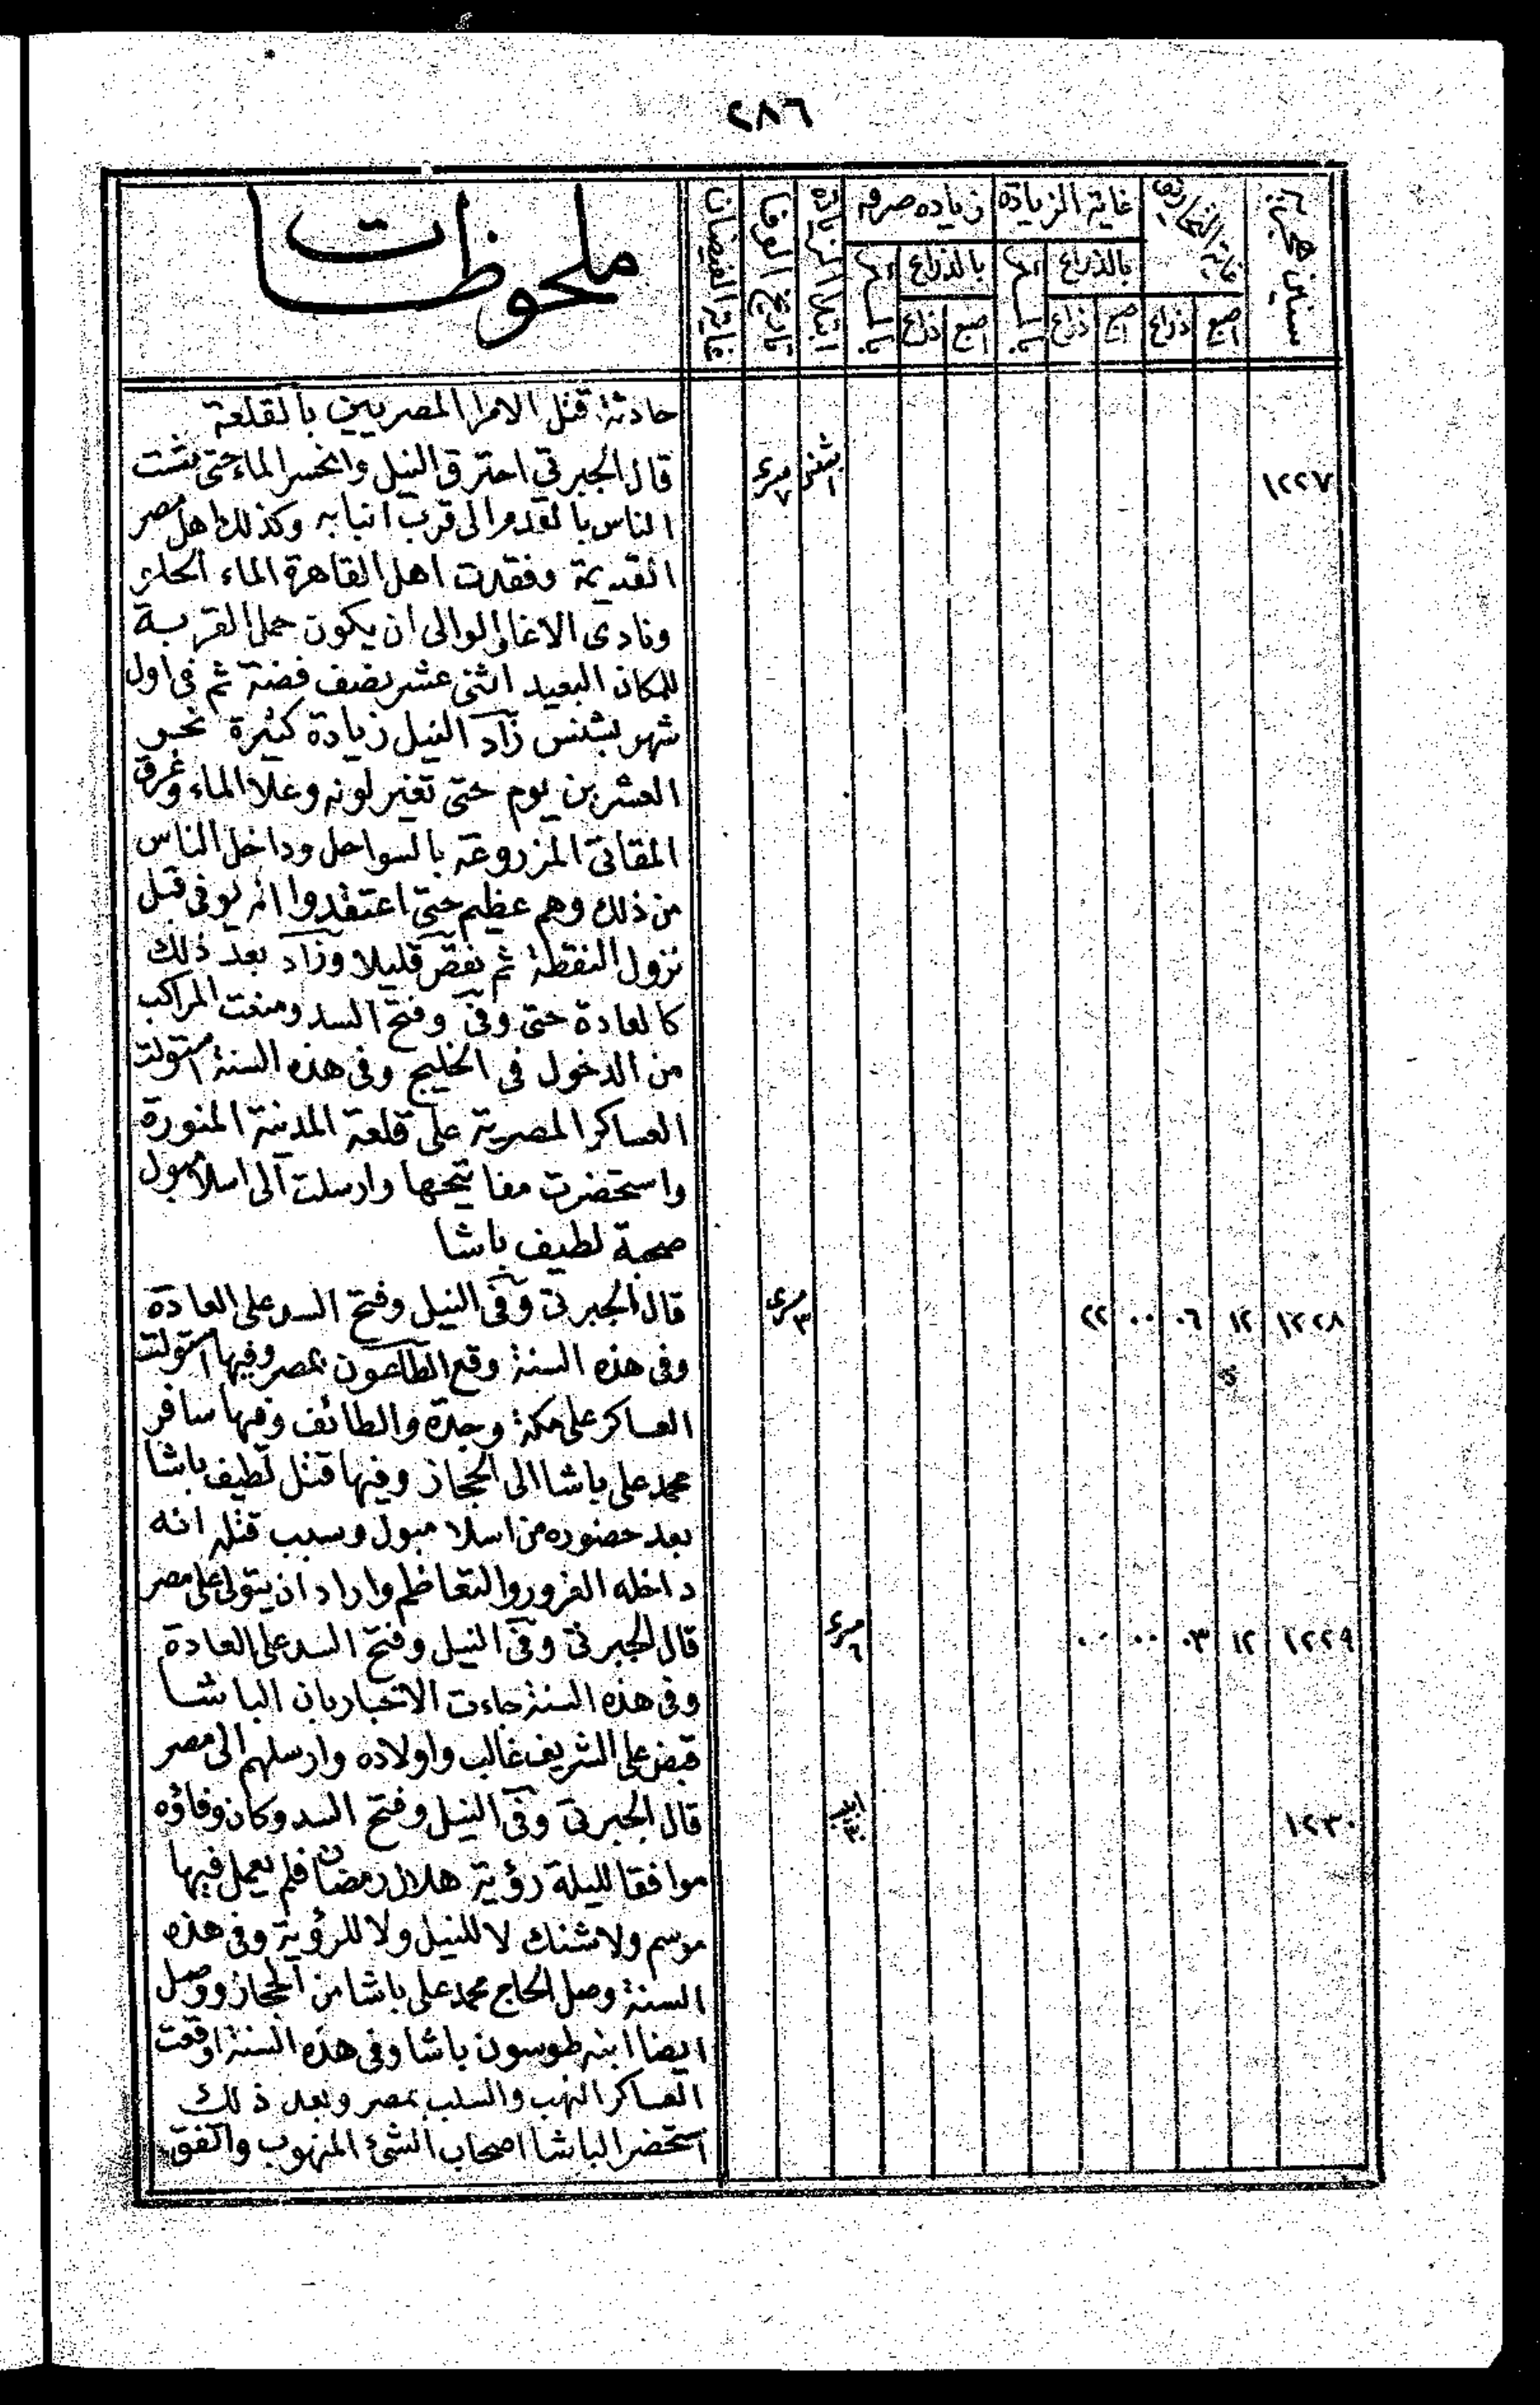 ٢٨٦
سنين هجرية
غاية التحاريق
اصبع ذراع
غاية الزيادة
بالذراع
اصبع ذراع
زياده صرفه
بالذراع
اصبع ذراع
ابتدا الزيادة
تاريخ الوفا
غاية الفيضان
ملحوظات
حادثة قتل الامرا المصريين بالقلعة
١٢٢٧ بشنس ١ مسرى ٧ قال الجبرتي احترق النيل وانحسر الماء حتى مشت
الناس بالقدم الى قرب انبابه وكذلك اهل مصر
القديمة وفقدت اهل القاهرة الماء الحلو
ونادى الاغا والوالى ان يكون حمل القربة
للمكان البعيد اثنى عشر نصف فضة ثم فى اول
شهر بشنس زاد النيل زيادة كثيرة نحو
العشرين يوم حتى تغير لونه وعلا الماء وغرق
المقاتى المزروعة بالسواحل وداخل الناس
من ذلك وهم عظيم حتى اعتقدوا انه يوفى قبل
نزول النقطة ثم نقص قليلا وزاد بعد ذلك
كالعادة حتى وفى وفتح السد ومنعت المراكب
من الدخول فى الخليج وفى هذه السنة استولت
العساكر المصرية على قلعة المدينة المنورة
واستحضرت مفاتيحها وارسلت الى اسلامبول
صحبة لطيف باشا
١٢٢٨ ١٢ ٠٦ ٠٠ ٢٢ مسرى ٣ قال الجبرتى وفى النيل وفتح السد على العادة
وفى هذه السنة وقع الطاعون بمصر وفيها استولت
العساكر على مكة وجدة والطائف وفيها سافر
محمد على باشا الى الحجاز وفيها قتل لطيف باشا
بعد حضوره من اسلامبول وسبب قتله انه
داخله الغرور والتعاظم واراد ان يتولى على مصر
١٢٢٩ ١٢ ٠٣ ٠٠ ٠٠ مسرى ٦ قال الجبرتى وفى النيل وفتح السد على العادة
وفى هذه السنة جاءت الاخبار بان الباشا
قبض على الشريف غالب واولاده وارسلهم الى مصر
١٢٣٠ قال الجبرتى وفى النيل وفتح السد وكان وفاؤه
موافقا لليلة رؤية هلال رمضان فلم يعمل فيها
موسم ولا شنك لا للنيل ولا للرؤية وفى هذه
السنة وصل الحاج محمد على باشا من الحجاز ووصل
ايضا ابنه طوسون باشا وفى هذه السنة اوقعت
العساكر النهب والسلب بمصر وبعد ذلك
استحضر الباشا اصحاب الشئ المنهوب واتفق